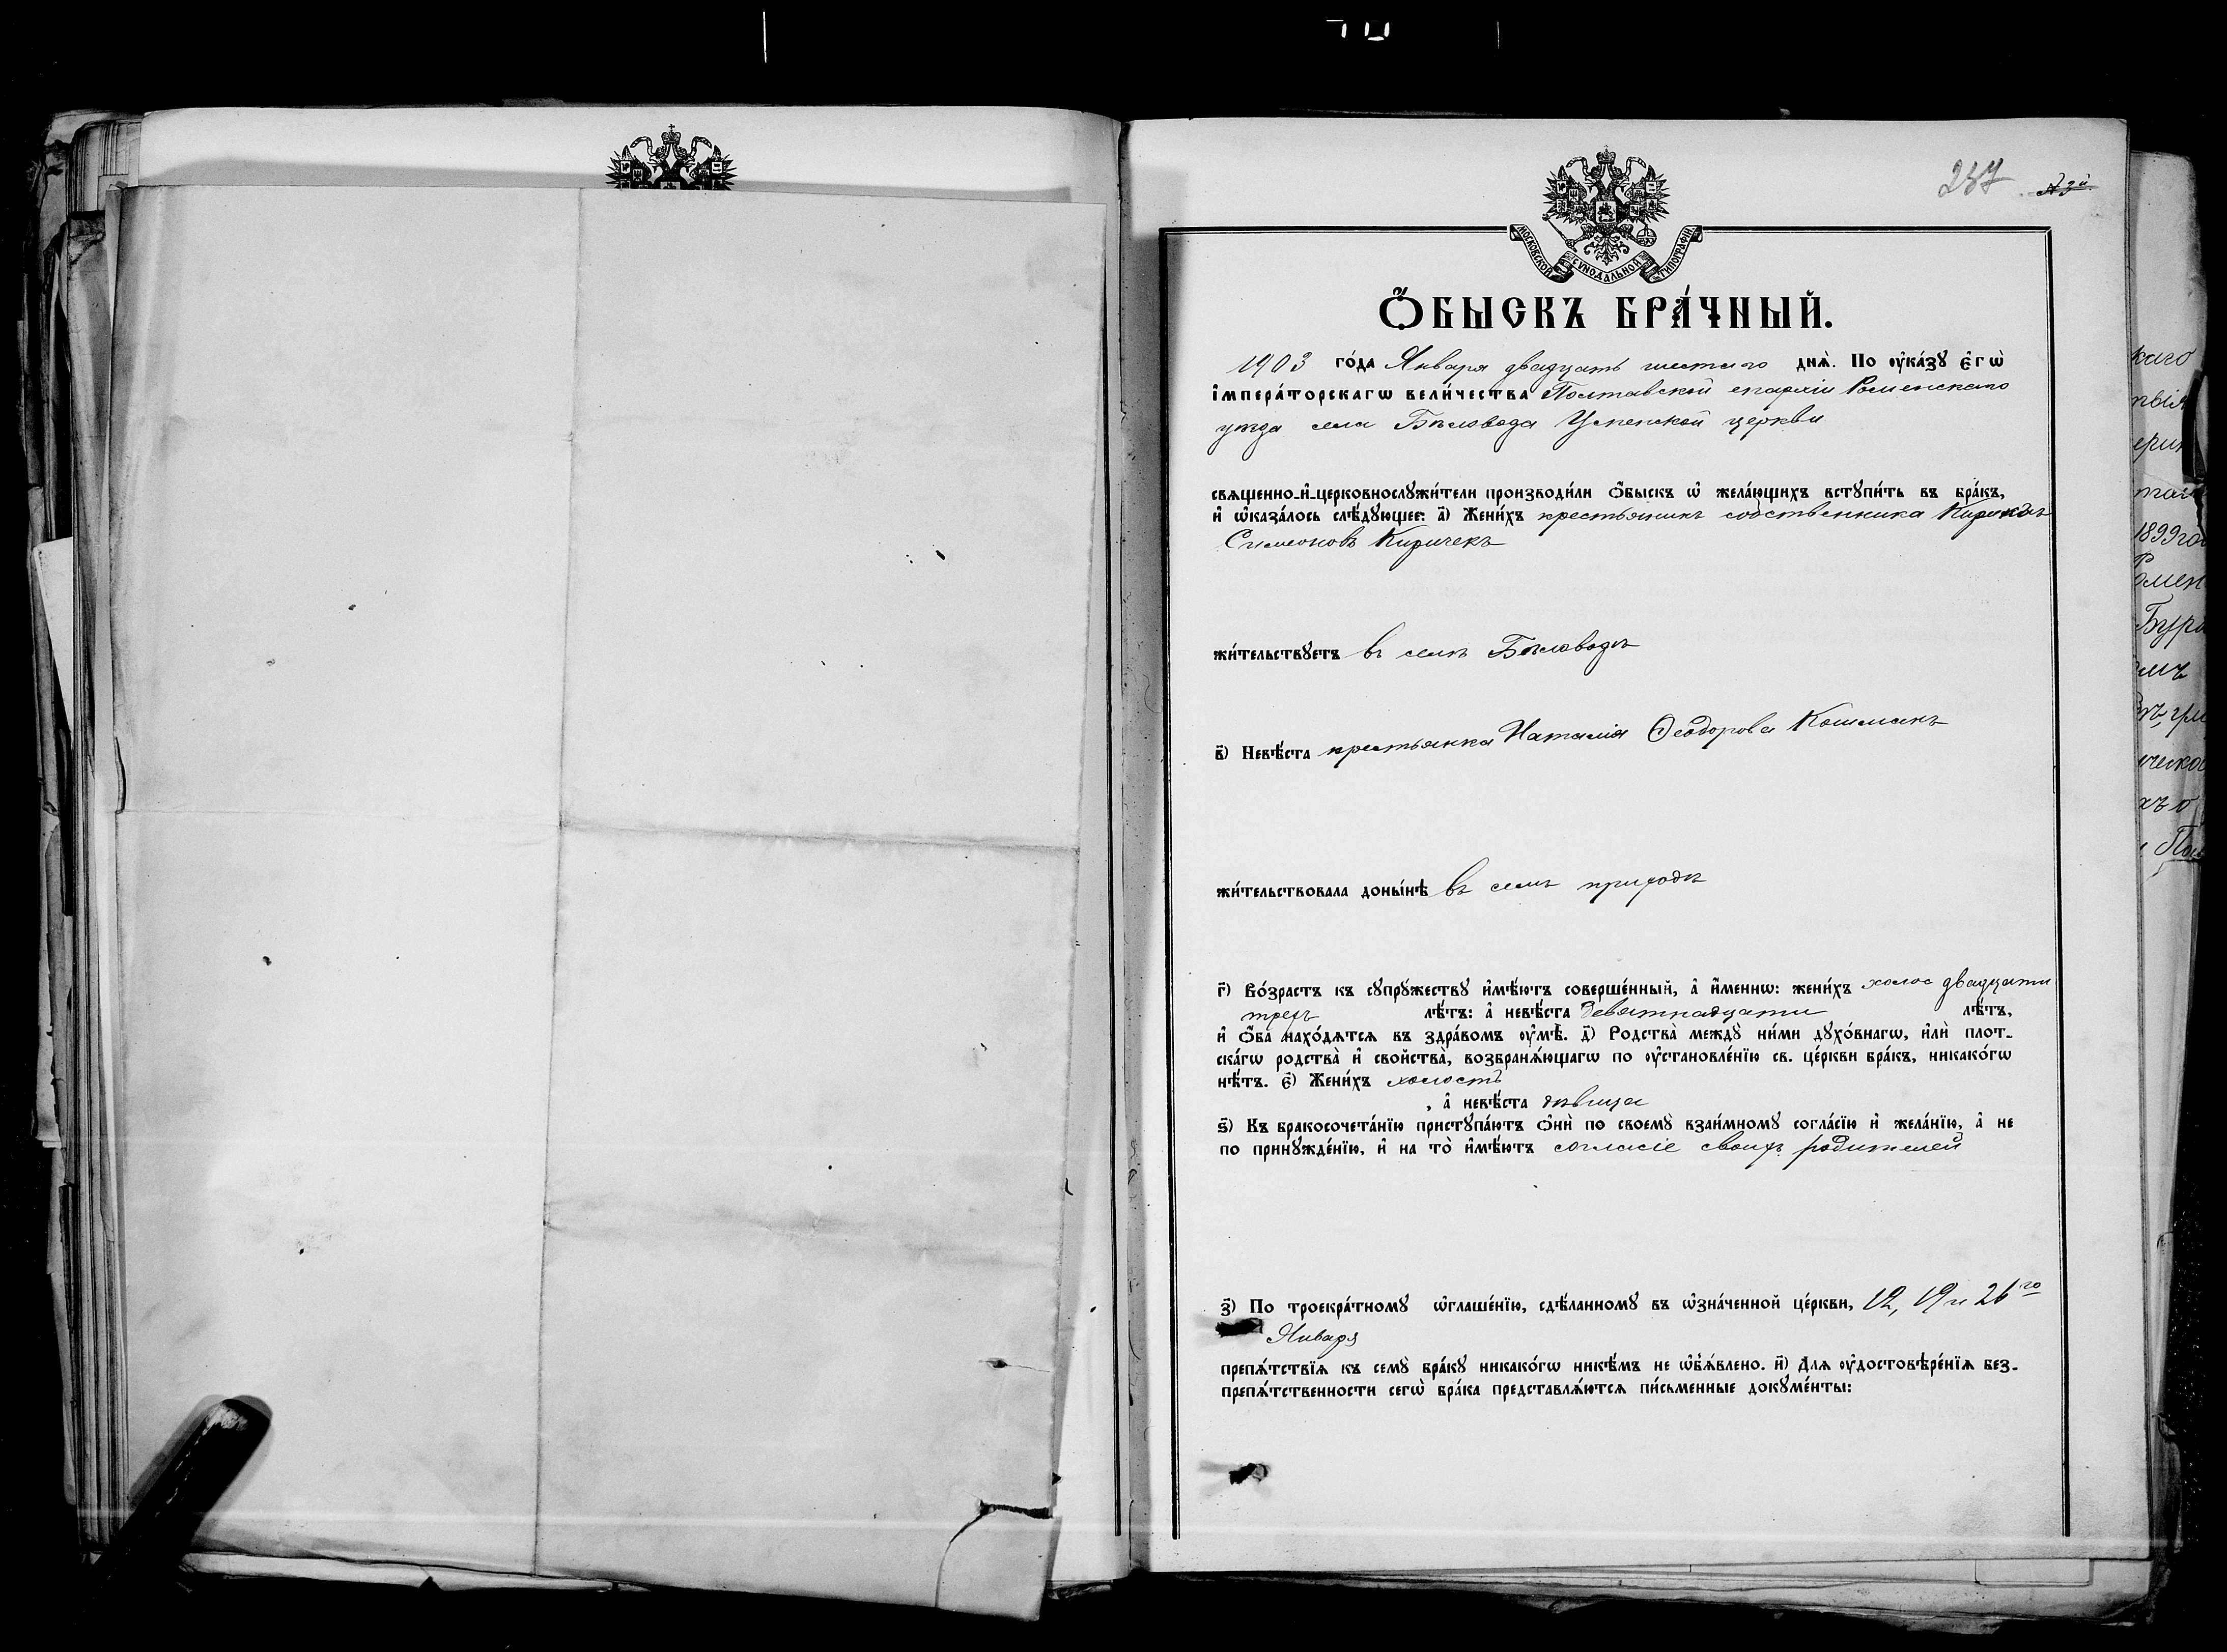 237 №3й.
МОСКОВСКОЙ СѴНОДАЛЬНОЙ ТИПОГРАФІИ
Ѻ҆БЫСКЪ БРА́ЧНЫЙ.
1903 го́да Января двадцать шестаго днѧ̀. По ᲂу҆ка́зꙋ є҆гѡ̀
і҆мпера́торскагѡ вели́чества Полтавской епархіи Роменскаго
уѣзда села Бѣловода Успенской церкви
свѧщенно-и҆-церковнослꙋжи́тели производи́ли ѻ҆́быскъ ѡ҆ жела́ющихъ встꙋпи́ть въ бра́къ,
и҆ ѡ҆каза́лось слѣ́дꙋющее: а҃) Жени́хъ крестьянинъ собственника
Симеоновъ Киричекъ
жи́тельствꙋетъ въ селѣ Бѣловодѣ
в҃) Невѣ́ста крестьянка Наталія Ѳеодорова Кошманъ
жи́тельствовала доны́нѣ въ семъ приходѣ
г҃) Во́зрастъ къ сꙋпрꙋ́жествꙋ и҆мѣ́ютъ соверше́нный, а҆ и҆́меннѡ: жени́хъ холос двадцати
трехъ лѣ́тъ: а҆ невѣ́ста девятнадцати лѣ́тъ,
и҆ ѻ҆́ба нахо́дѧтсѧ въ здра́вомъ ᲂу҆мѣ̀. д҃) Родства̀ междꙋ̀ ни́ми дꙋхо́внагѡ, и҆лѝ плот-
ска́гѡ родства̀ и҆ сво́йства, возбранѧ́ющагѡ по ᲂу҆становле́нїю св. це́ркви бра́къ, никако́гѡ
нѣ́тъ. є҃) Жени́хъ холостъ
, а҆ невѣ́ста дѣвица
ѕ҃) Къ бракосочета́нїю пристꙋпа́ютъ ѻ҆нѝ по своемꙋ̀ взаи́мномꙋ согла́сїю и҆ жела́нїю, а҆ не
по принꙋжде́нїю, и҆ на то̀ и҆мѣ́ютъ согласіе своихъ родителей
з҃) По троекра́тномꙋ ѡ҆глаше́нїю, сдѣ́ланномꙋ въ ѡ҆зна́ченной це́ркви, 12, 19 и 26го
Января
препѧ́тствїѧ къ семꙋ̀ бра́кꙋ никако́гѡ никѣ́мъ не ѡ҆б̾ѧ́влено. и҃) Длѧ ᲂу҆достовѣре́нїѧ без-
препѧ́тственности сегѡ̀ бра́ка представлѧ́ютсѧ пи́сьменные докꙋме́нты: